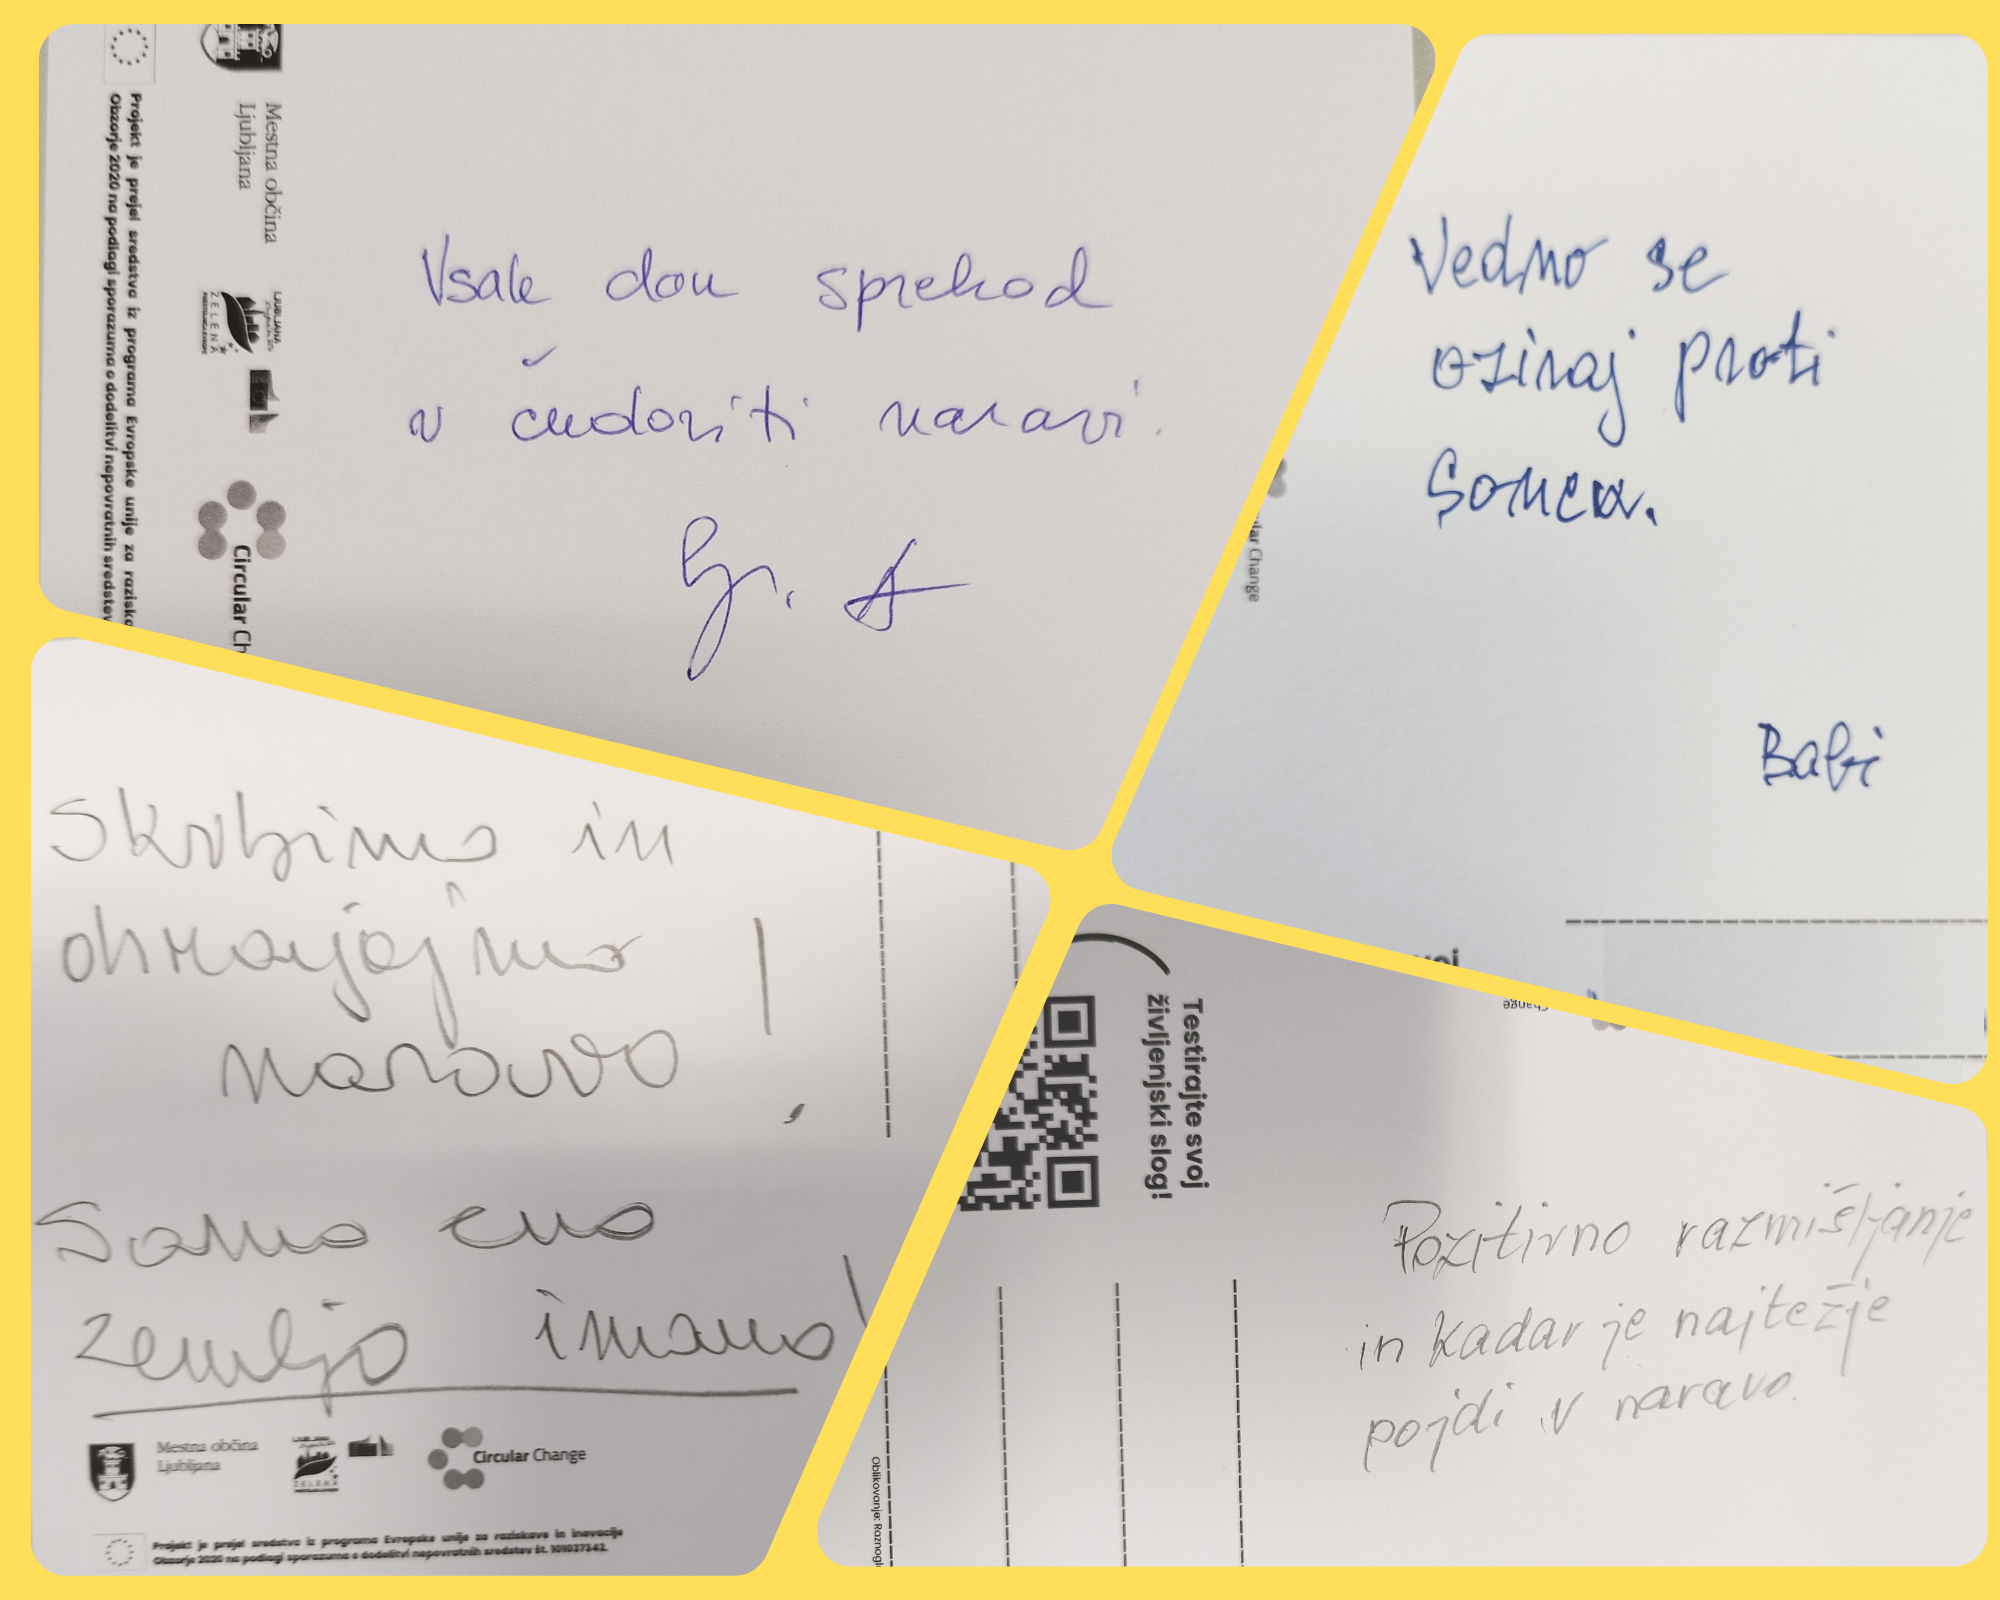 Vsak dan sprehod
v čudoviti naravi.
Mestna občina
Ljubljana
LJUBLJANA
ZELENA
Circular Ch
Projekt je prejel sredstva iz programa Evropske unije za razisko
Obzorje 2020 na podlagi sporazuma o dodelitvi nepovratnih sredstev
Vedno se
oziraj proti
Soncu.
Babi
lar Change
Skrbimo in
ohranjajmo
naravo!
Samo eno
zemljo imamo!
Mestna občina
Ljubljana
ZELENA
Circular Change
Projekt je prejel sredstva iz programa Evropske unije za raziskave in inovacije
Obzorje 2020 na podlagi sporazuma o dodelitvi nepovratnih sredstev št. 101037342.
Testirajte svoj
življenjski slog!
Change
Pozitivno razmišljanje
in kadar je najtežje
pojdi v naravo.
Oblikovanje: Raznogl